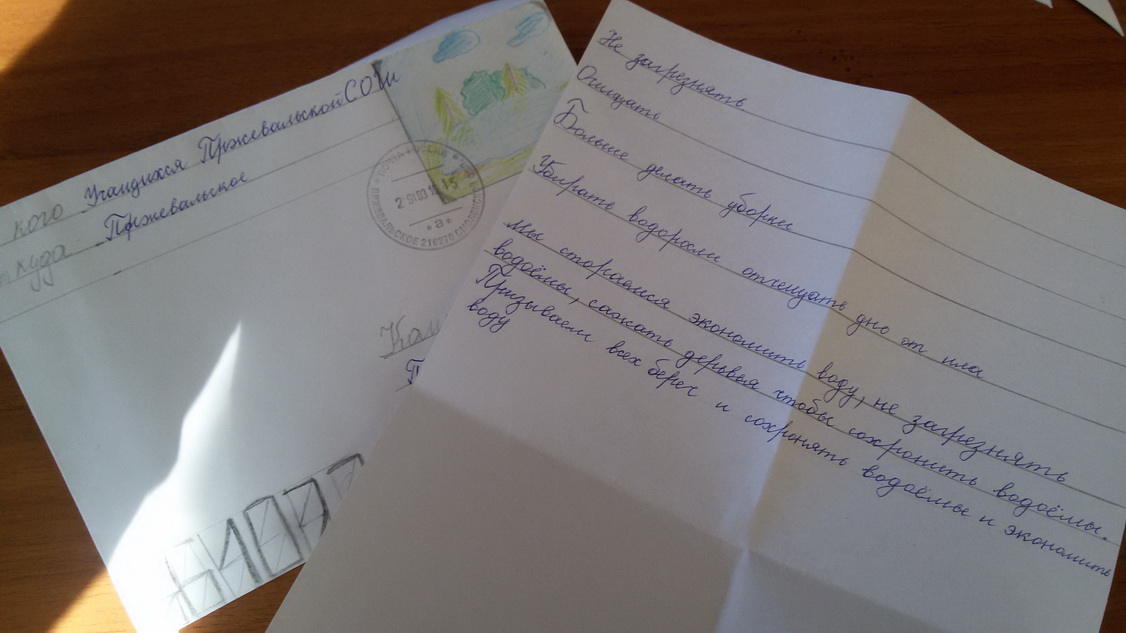 кого Учащихся Пржевальской СОШ
куда Пржевальское
Не загрезнять
Очищать
Больше делать уборки
Убирать водоросли отчещать дно от ила
Мы стораемся экономить воду, не загрезнять
водоёмы, сажать деревья чтобы сохронить водоёмы.
Призываем всех береч и сохронять водоёмы и экономить
воду